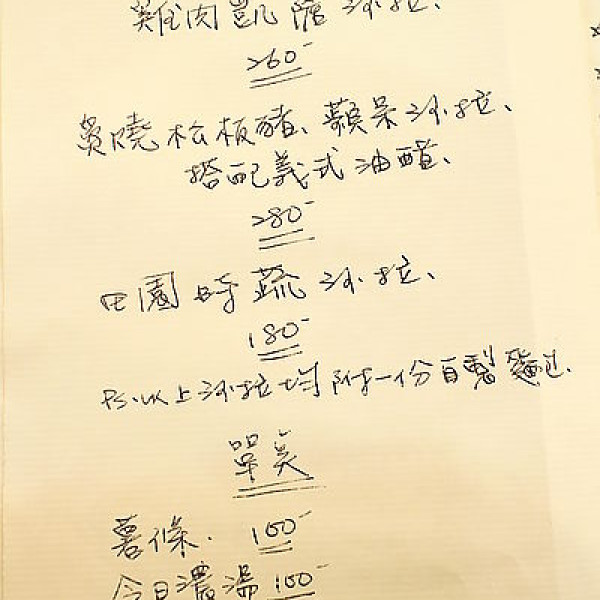 雞肉凱薩沙拉、
260-
炭燒松板豬、蘋果沙拉、
搭配義式油醋、
280-
田園時蔬沙拉、
180-
PS.以上沙拉均附一份自製麵包.
單點
薯條. 100-
今日濃湯 100-